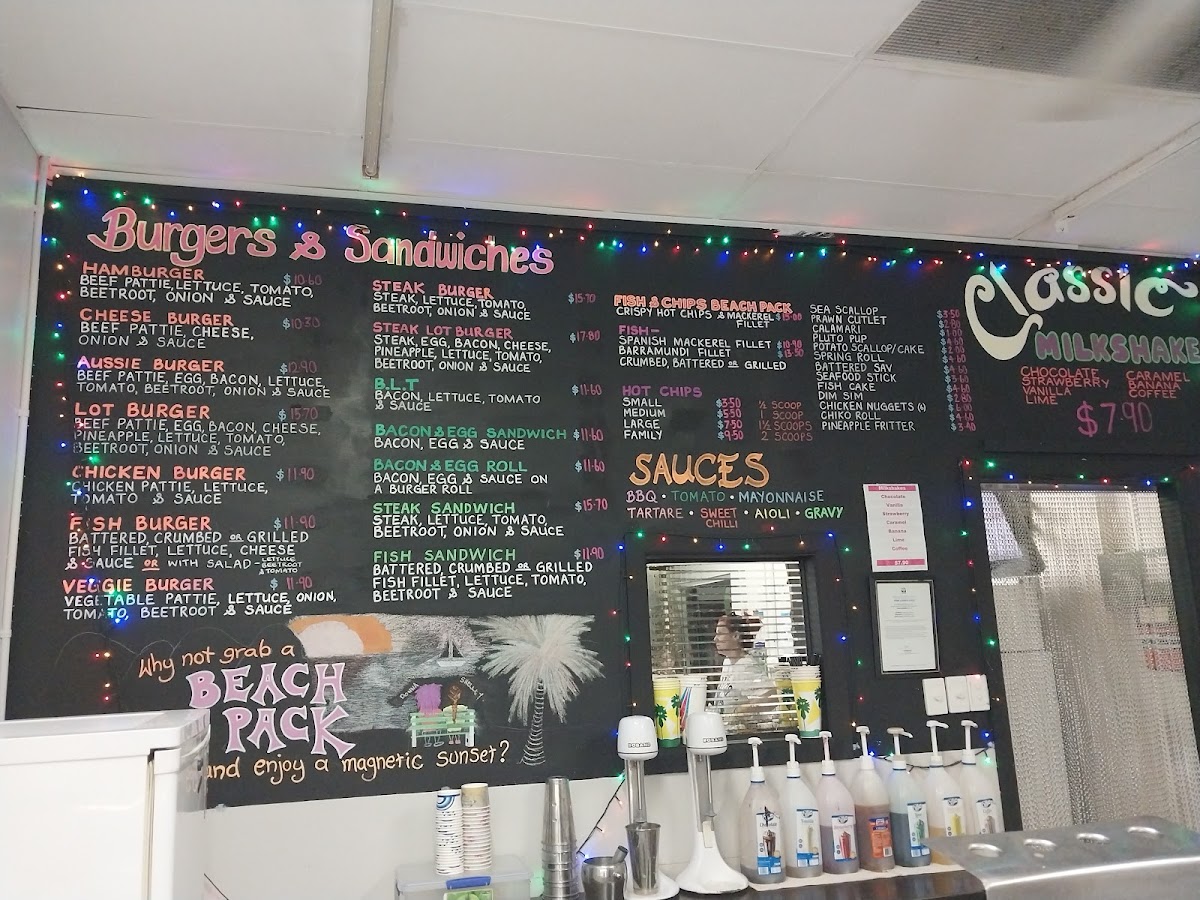 Burgers & Sandwiches
HAMBURGER $10.60
BEEF PATTIE, LETTUCE, TOMATO,
BEETROOT, ONION & SAUCE
CHEESE BURGER $10.30
BEEF PATTIE, CHEESE,
ONION & SAUCE
AUSSIE BURGER $12.90
BEEF PATTIE, EGG, BACON, LETTUCE,
TOMATO, BEETROOT, ONION & SAUCE
LOT BURGER $15.70
BEEF PATTIE, EGG, BACON, CHEESE,
PINEAPPLE, LETTUCE, TOMATO,
BEETROOT, ONION & SAUCE
CHICKEN BURGER $11.90
CHICKEN PATTIE, LETTUCE,
TOMATO & SAUCE
FISH BURGER $11.90
BATTERED, CRUMBED OR GRILLED
FISH FILLET, LETTUCE, CHEESE
& SAUCE OR WITH SALAD - LETTUCE
BEETROOT
& TOMATO
VEGGIE BURGER $11.90
VEGETABLE PATTIE, LETTUCE, ONION,
TOMATO, BEETROOT & SAUCE
STEAK BURGER $15.70
STEAK, LETTUCE, TOMATO,
BEETROOT, ONION & SAUCE
STEAK LOT BURGER $17.80
STEAK, EGG, BACON, CHEESE,
PINEAPPLE, LETTUCE, TOMATO,
BEETROOT, ONION & SAUCE
B.L.T $11.60
BACON, LETTUCE, TOMATO
& SAUCE
BACON & EGG SANDWICH $11.60
BACON, EGG & SAUCE
BACON & EGG ROLL $11.60
BACON, EGG & SAUCE ON
A BURGER ROLL
STEAK SANDWICH $15.70
STEAK, LETTUCE, TOMATO,
BEETROOT, ONION & SAUCE
FISH SANDWICH $11.90
BATTERED, CRUMBED OR GRILLED
FISH FILLET, LETTUCE, TOMATO,
BEETROOT & SAUCE
FISH & CHIPS BEACH PACK
CRISPY HOT CHIPS & MACKEREL
FILLET
FISH -
SPANISH MACKEREL FILLET $10.90
BARRAMUNDI FILLET $13.50
CRUMBED, BATTERED OR GRILLED
HOT CHIPS
SMALL $3.50 ½ SCOOP
MEDIUM $5.50 1 SCOOP
LARGE $7.50 1½ SCOOPS
FAMILY $9.50 2 SCOOPS
SEA SCALLOP
PRAWN CUTLET
CALAMARI
PLUTO PUP
POTATO SCALLOP/CAKE
SPRING ROLL
BATTERED SAV
SEAFOOD STICK
FISH CAKE
DIM SIM
CHICKEN NUGGETS (6)
CHIKO ROLL
PINEAPPLE FRITTER
SAUCES
BBQ • TOMATO • MAYONNAISE
TARTARE • SWEET CHILLI • AIOLI • GRAVY
Classic
MILKSHAKE
CHOCOLATE CARAMEL
STRAWBERRY BANANA
VANILLA COFFEE
LIME
$7.90
Milkshakes
Chocolate
Vanilla
Strawberry
Caramel
Banana
Lime
Coffee
$7.90
Why not grab a
BEACH
PACK
and enjoy a magnetic sunset?
ROBAND
ROBAND